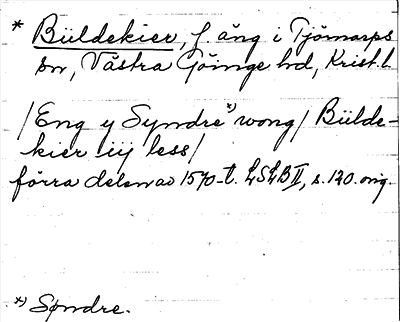 * Büldekier, f. äng i Tjörnarps
sn, Västra Göinge hd, Krist. l.
/Eng y Syndre*) wong/ Bülde-
kier iij less/
förra delen av 1570-t. LSLB II, s. 120. orig.
*) Søndre.